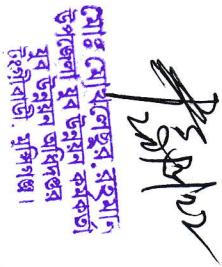 মোঃ মোখলেছুর রহমান
উপজেলা যুব উন্নয়ন কর্মকর্তা
যুব উন্নয়ন অধিদপ্তর
টংগীবাড়ী, মুন্সিগঞ্জ।